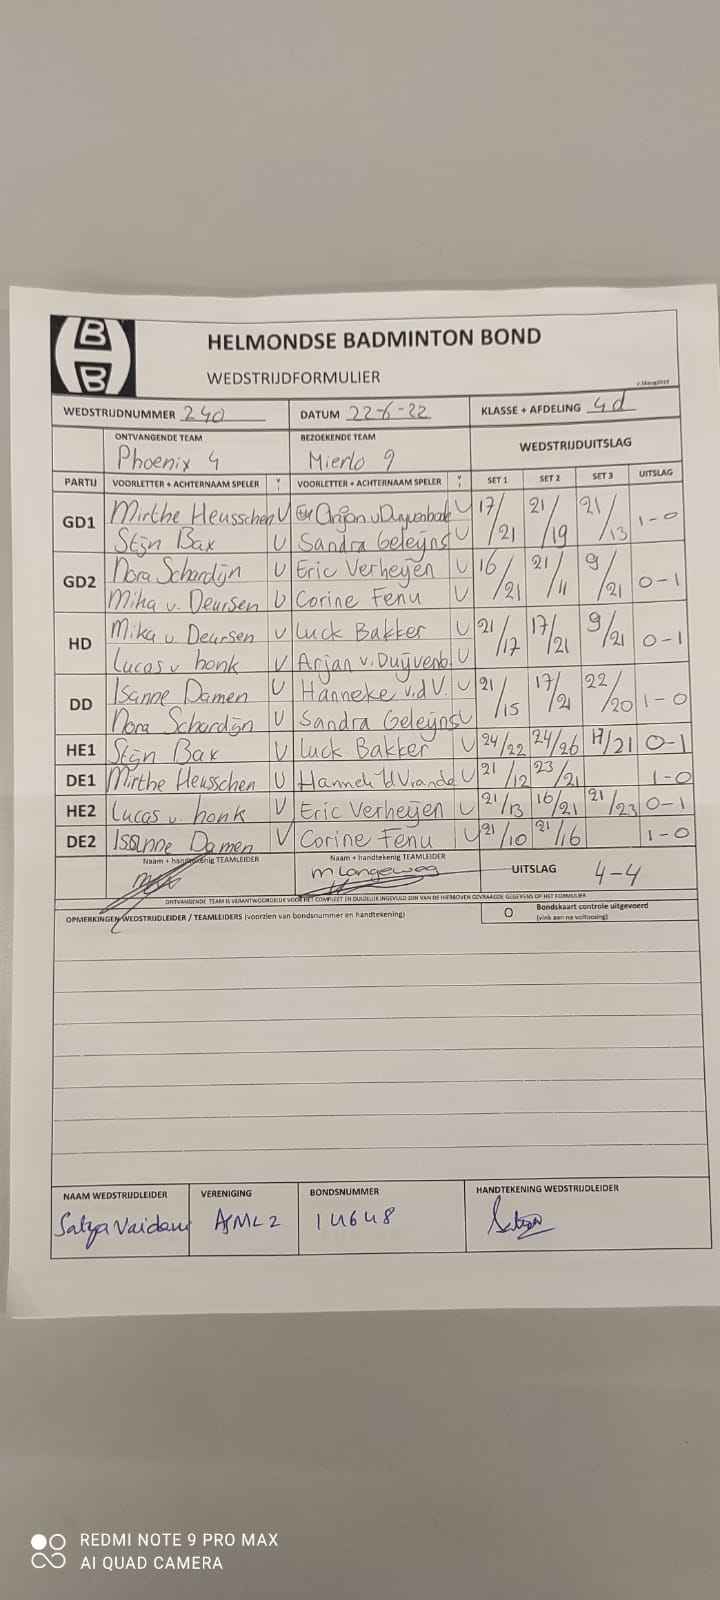 B
B
HELMONDSE BADMINTON BOND
WEDSTRIJDFORMULIER
WEDSTRIJDNUMMER 240 DATUM 22-6-22 KLASSE + AFDELING 4d
ONTVANGENDE TEAM BEZOEKENDE TEAM WEDSTRIJDUITSLAG
Phoenix 4 Mierlo 9
PARTIJ VOORLETTER + ACHTERNAAM SPELER V VOORLETTER + ACHTERNAAM SPELER V SET 1 SET 2 SET 3 UITSLAG
GD1 Mirthe Heusschen V V 17/21 21/19 21/13 1-0
Stijn Bax V Sandra Geleijns V
GD2 Nora Schardijn V Eric Verheijen V 16/21 21/11 9/21 0-1
Mika v. Deursen V Corine Fenu V
HD Mika v Deursen V Luck Bakker V 21/17 17/21 9/21 0-1
Lucas v honk V Arjan v. Duijvenb. V
DD Isanne Damen V Hanneke v.d V. V 21/15 17/21 22/20 1-0
Nora Schardijn V Sandra Geleijns V
HE1 Stijn Bax V Luck Bakker V 24/22 24/26 /21 0-1
DE1 Mirthe Heusschen V V 21/12 23/21 1-0
HE2 Lucas v. honk V Eric Verheijen V 21/13 16/21 21/23 0-1
DE2 Isanne Damen V Corine Fenu V 21/10 21/16 1-0
Naam + handtekenig TEAMLEIDER Naam + handtekenig TEAMLEIDER UITSLAG 4-4
M Langeweg
ONTVANGENDE TEAM IS VERANTWOORDELIJK VOOR HET COMPLEET EN DUIDELIJK INGEVULD ZIJN VAN DE HIERBOVEN GEVRAAGDE GEGEVENS OP HET FORMULIER
OPMERKINGEN WEDSTRIJDLEIDER / TEAMLEIDERS (voorzien van bondsnummer en handtekening) O Bondskaart controle uitgevoerd
(vink aan na voltooing)
NAAM WEDSTRIJDLEIDER VERENIGING BONDSNUMMER HANDTEKENING WEDSTRIJDLEIDER
Satya ASML 2 14648
REDMI NOTE 9 PRO MAX
AI QUAD CAMERA